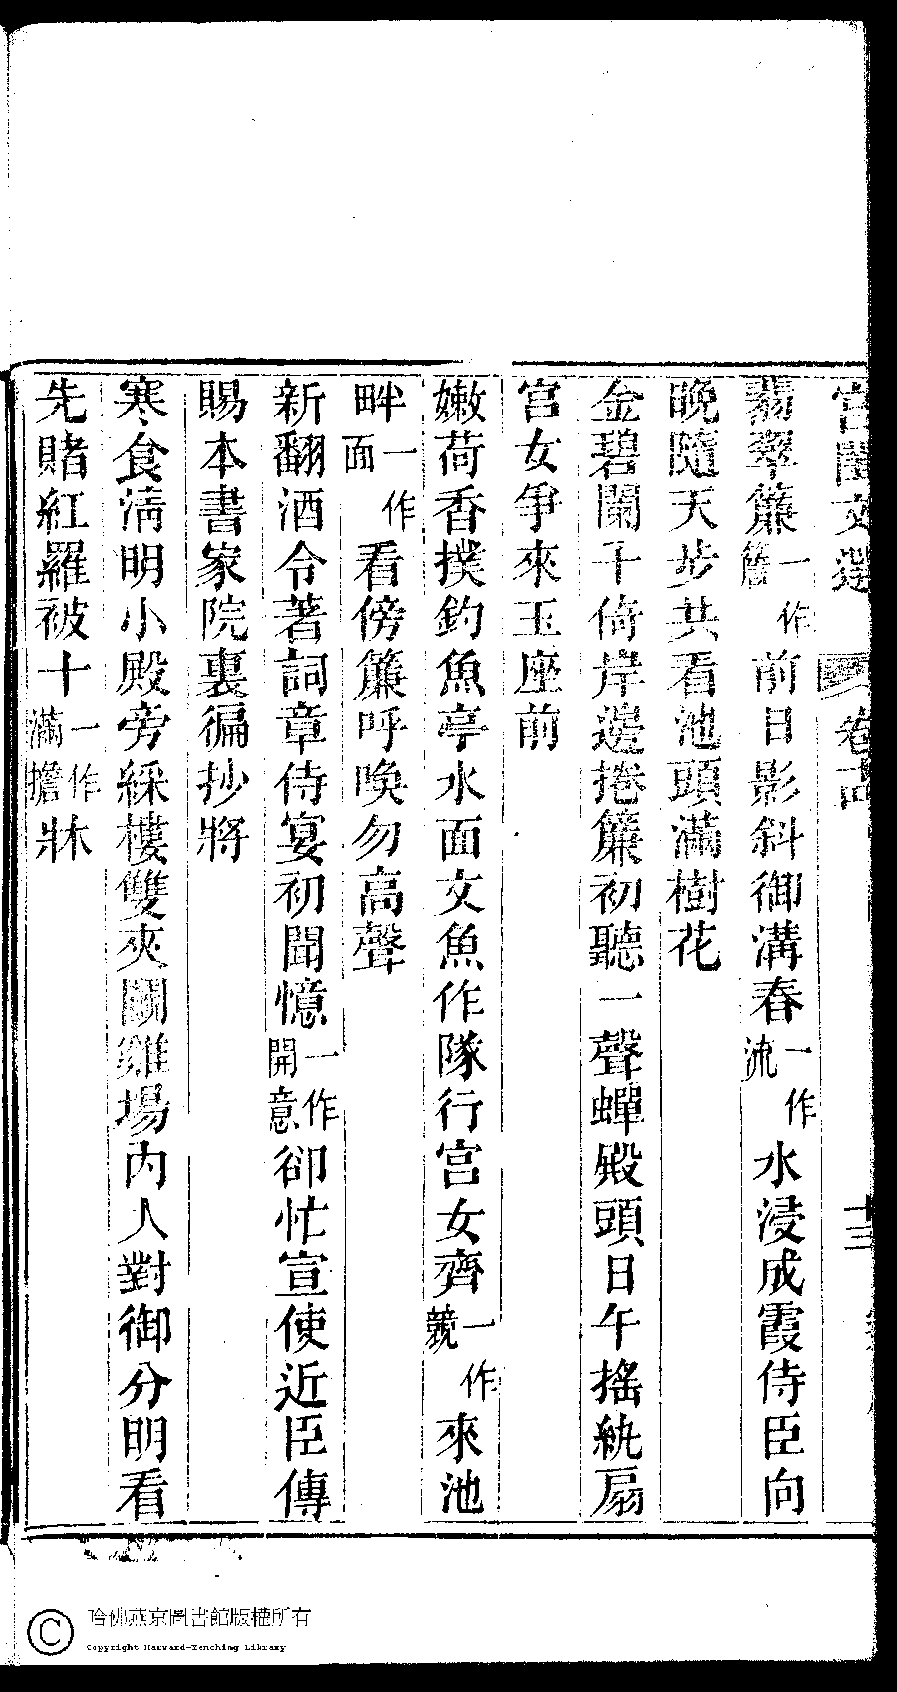 宮閨文選 卷十四 十三
翡翠簾一作簷前日影斜御溝春一作流水浸成霞侍臣向
晚隨天步共看池頭滿樹花
金碧闌干倚岸邊捲簾初聽一聲蟬殿頭日午搖紈扇
宮女爭來玉座前
嫩荷香撲釣魚亭水面文魚作隊行宮女齊一作競來池
畔一作面看傍簾呼喚勿高聲
新翻酒令著詞章侍宴初聞憶一作開意卻忙宣使近臣傳
賜本書家院裏徧抄將
寒食淸明小殿旁綵樓雙夾鬬雞場內人對御分明看
先賭紅羅被十一作滿擔牀
哈佛燕京圖書館版權所有
Copyright Harvard-Yenching Library